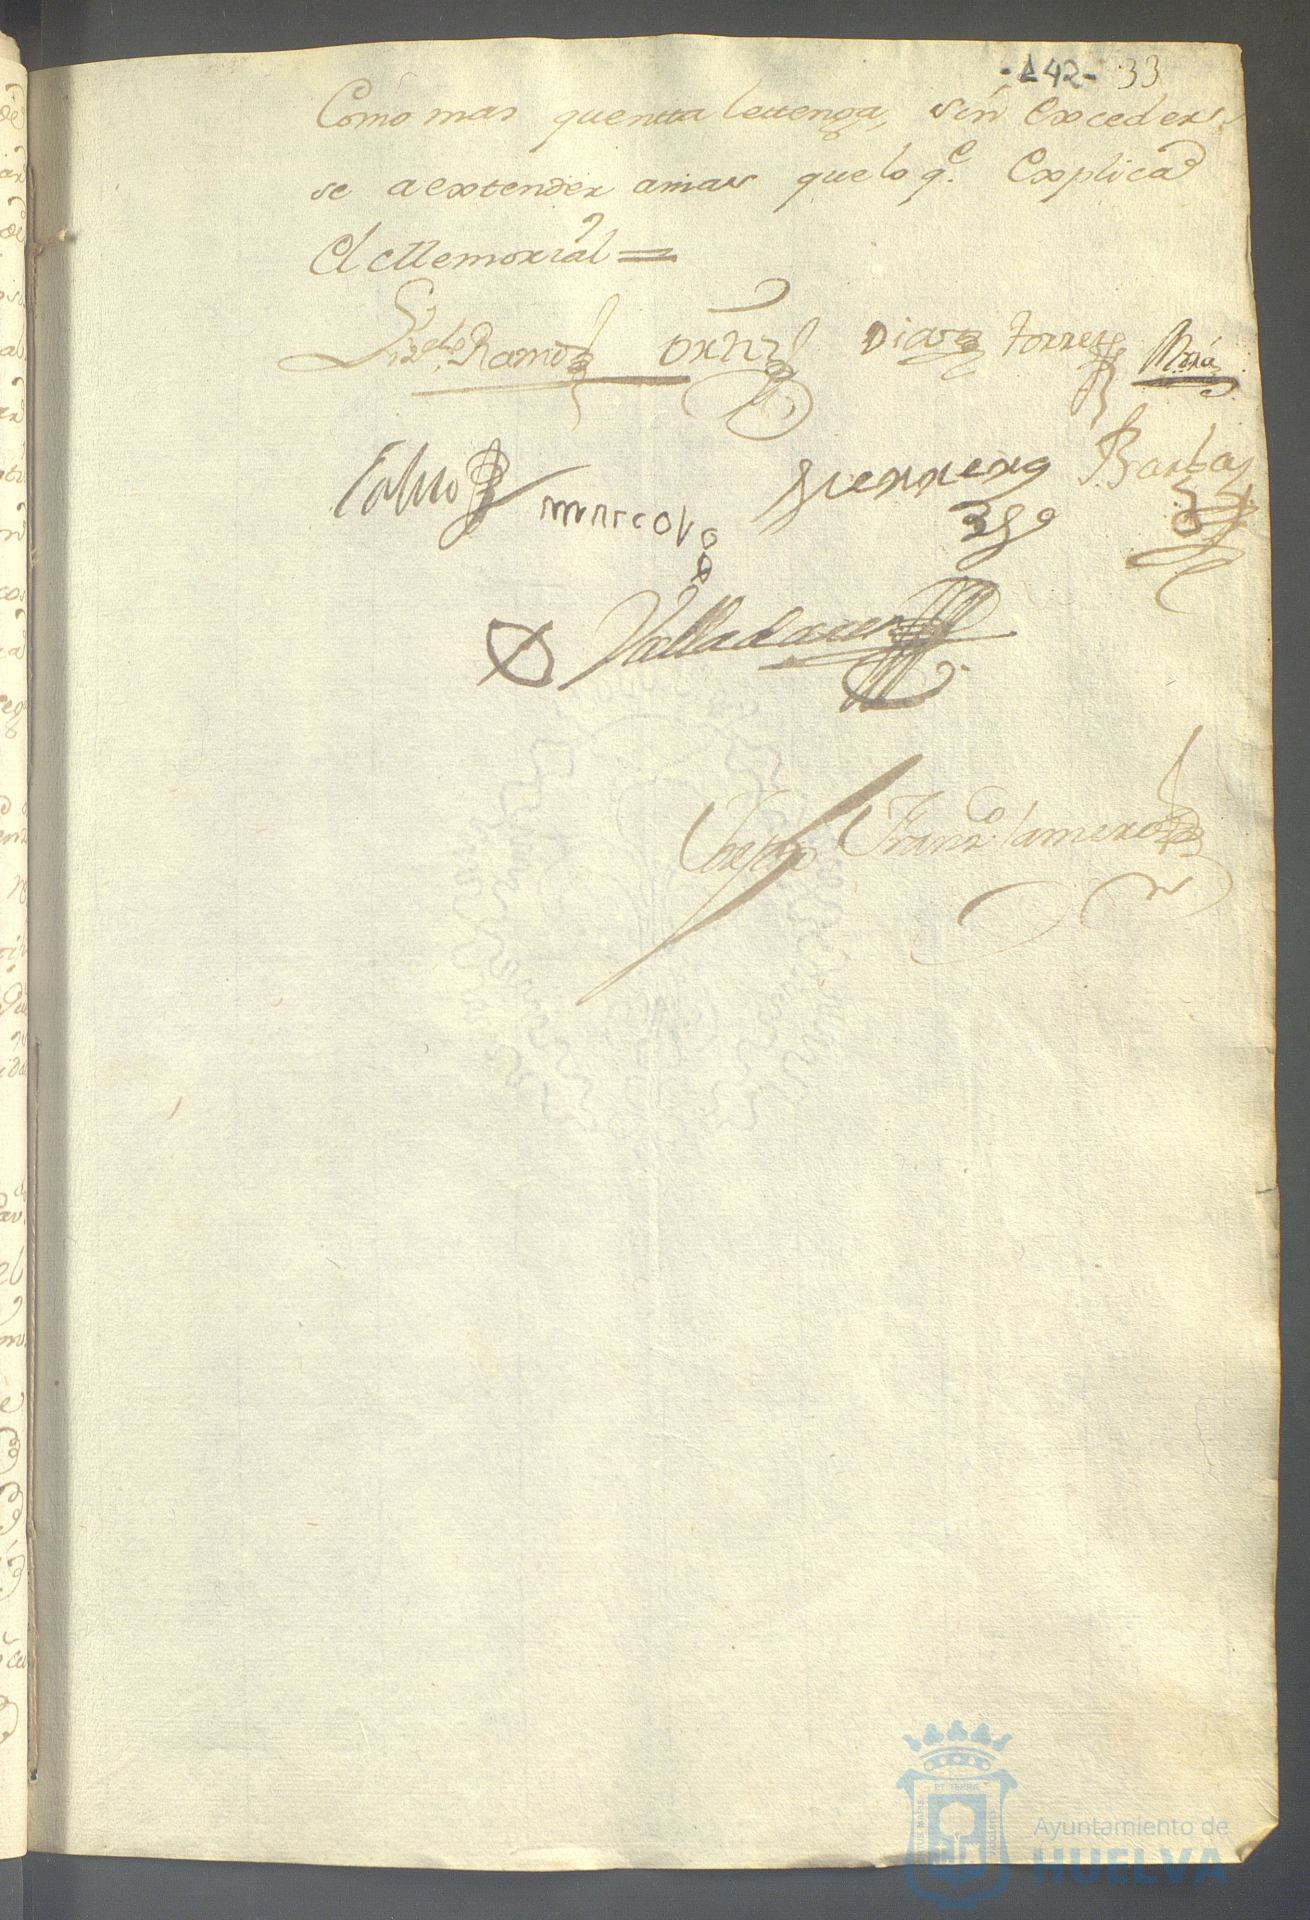 -142- 33
Como mas quenta lettenga, sin exceder
se a extender amas que lo q.e Explica
el Memorial =
Liz.do Ramos Ortiz Diaz Torres
marcolo Guerrero Barba
Valladares
Franz.co Camero
Ayuntamiento de
HUELVA